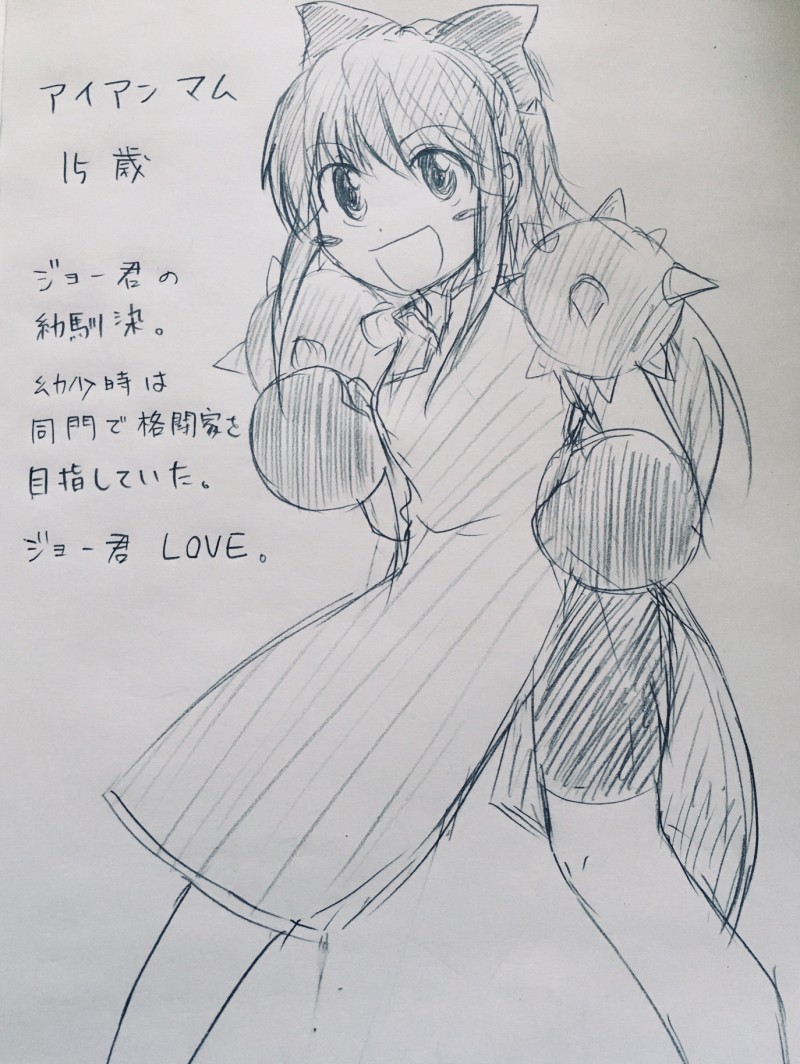 アイアン マム
15歳
ジョー君の
幼馴染。
幼少時は
同門で格闘家を
目指していた。
ジョー君 LOVE。